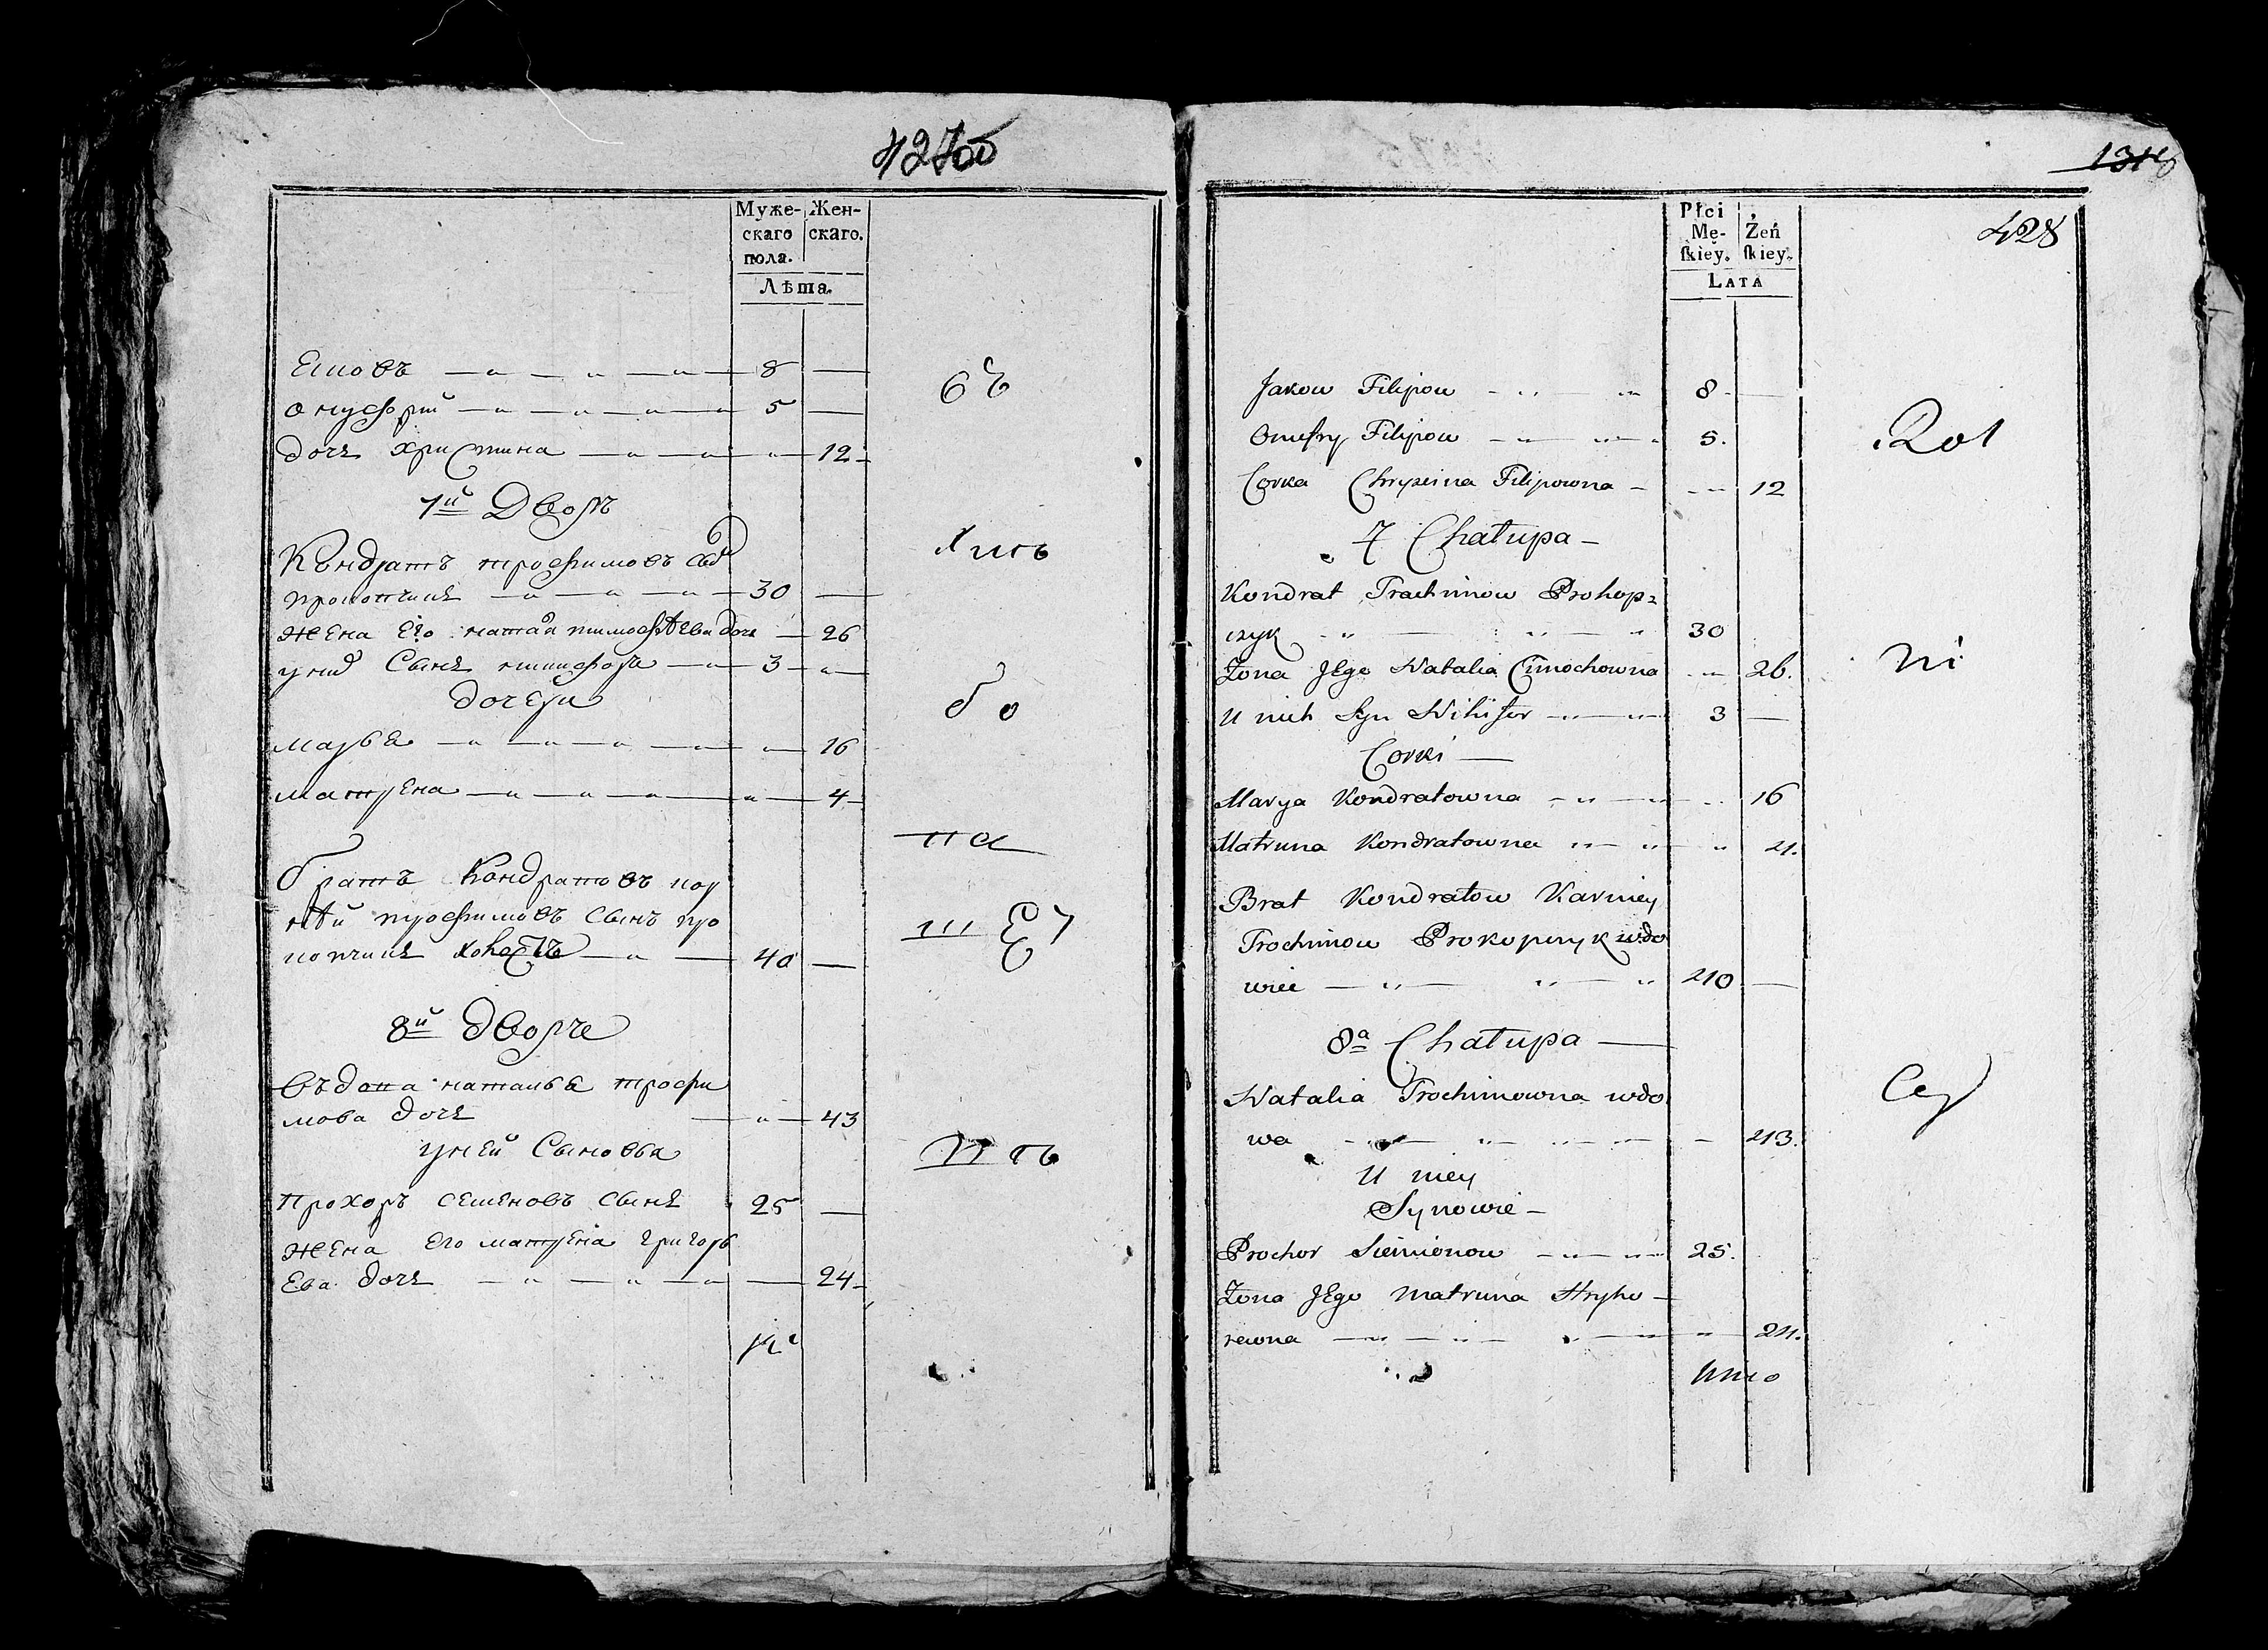 427об
Муже- Жен-
скаго скаго.
пола.
Лѣта.
Еиковъ 8 —
онуфрий 5 —
дочь христина 12
7й Дворъ
Кондратъ трофимовъ сынъ
прокопчикъ 30 —
Жена Его наталя тимофѣева дочь 26
у них Сынъ никифоръ 3
дочери
марья 16
матрена 4
братъ Кондратовъ кор
нѣй трофимовъ сынъ про
копчикъ 40 —
8й дворъ
въдова наталья трофи
мова дочь 43
у ней Сыновья
Прохоръ семеновъ сынъ 25 —
Жена его матрена григорь
Ева дочь 24
бо
на
1316
428
Płci Żeń
Mę- skiey.
skiey.
LATA
Jakow Filipow 8 —
Onufry Filipow 5.
Corka Chrystina Filipowna 12
7 Chałupa —
Kondrat Trachimow Prokop=
czyk 30
Żona Jego Natalia Cimochowna 26.
U nich Syn Nikifor 3 —
Corki —
Marya Kondratowna 16
Matruna Kondratowna 4.
Brat Kondratow Karniey
Trochimow Prokopczyk wdo
wiec 40 —
8a Chałupa —
Natalia Trochimowna wdo
wa 43.
U niey
Synowie —
Prochor Siemionow 25.
Żona Jego Matruna Hryho —
rewna 24.